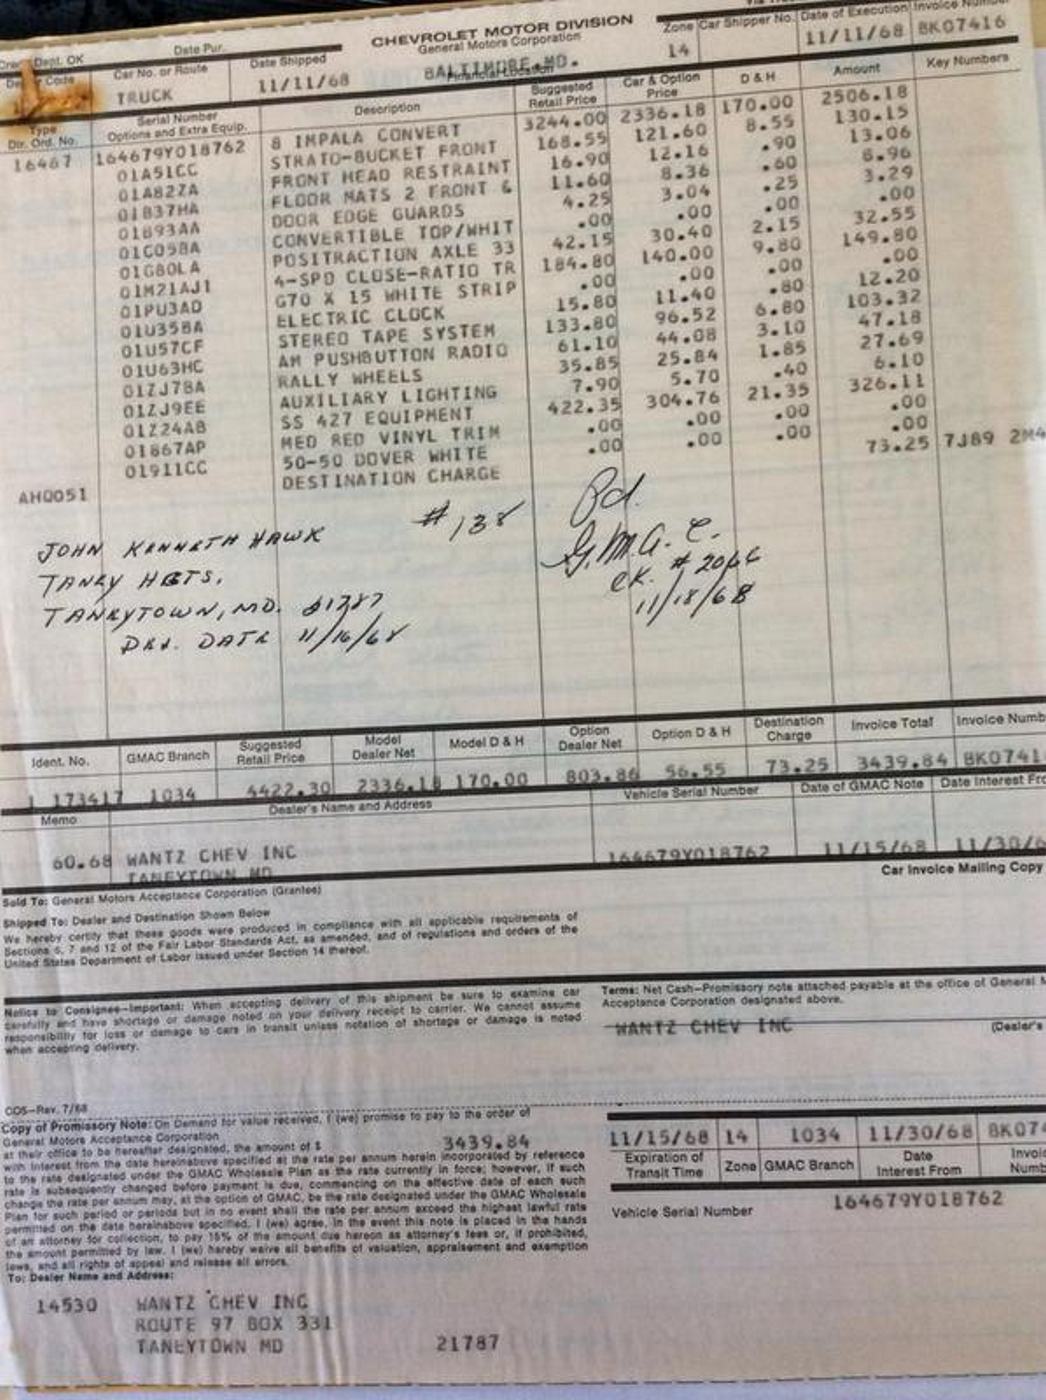 CHEVROLET MOTOR DIVISION
General Motors Corporation
Dept. OK
Date Pur.
Date Shipped
11/11/68
BALTIMORE, MD.
Financial Location
Zone
14
Car Shipper No.
Date of Execution
11/11/68
Invoice Number
BK07416
Code
Car No. or Route
TRUCK
Type
Dlr. Ord. No.
Serial Number
Options and Extra Equip.
Description
Suggested Retail Price
Car & Option Price
D & H
Amount
Key Numbers
16467 164679Y018762 8 IMPALA CONVERT 3244.00 2336.18 170.00 2506.18
01A51CC STRATO-BUCKET FRONT 168.55 121.60 8.55 130.15
01A82ZA FRONT HEAD RESTRAINT 16.90 12.16 .90 13.06
01B37HA FLOOR MATS 2 FRONT & 11.60 8.36 .60 8.96
01B93AA DOOR EDGE GUARDS 4.25 3.04 .25 3.29
01C05BA CONVERTIBLE TOP/WHIT .00 .00 .00 .00
01G80LA POSITRACTION AXLE 33 42.15 30.40 2.15 32.55
01M21AJ1 4-SPD CLOSE-RATIO TR 184.80 140.00 9.80 149.80
01PU3AD G70 X 15 WHITE STRIP .00 .00 .00 .00
01U35BA ELECTRIC CLOCK 15.80 11.40 .80 12.20
01U57CF STEREO TAPE SYSTEM 133.80 96.52 6.80 103.32
01U63HC AM PUSHBUTTON RADIO 61.10 44.08 3.10 47.18
01ZJ7BA RALLY WHEELS 35.85 25.84 1.85 27.69
01ZJ9EE AUXILIARY LIGHTING 7.90 5.70 .40 6.10
01Z24AB SS 427 EQUIPMENT 422.35 304.76 21.35 326.11
01867AP MED RED VINYL TRIM .00 .00 .00 .00
01911CC 50-50 DOVER WHITE .00 .00 .00 .00
AHQ051 DESTINATION CHARGE 73.25 7J89 2M4
#138
Pd.
G.M.A.C.
CK. # 2066
11/18/68
JOHN KENNETH HAWK
TANEY HGTS.
TANEYTOWN, MD. 21787
DEL. DATE 11/16/68
Ident. No. GMAC Branch Suggested Retail Price Model Dealer Net Model D & H Option Dealer Net Option D & H Destination Charge Invoice Total Invoice Numb
173417 1034 4422.30 2336.18 170.00 803.86 56.55 73.25 3439.84 BK0741
Memo Dealer's Name and Address Vehicle Serial Number Date of GMAC Note Date Interest Fro
60.68 WANTZ CHEV INC 164679Y018762 11/15/68 11/30/6
TANEYTOWN MD
Car Invoice Mailing Copy
Sold To: General Motors Acceptance Corporation (Grantee)
Shipped To: Dealer and Destination Shown Below
We hereby certify that these goods were produced in compliance with all applicable requirements of
Sections 6, 7 and 12 of the Fair Labor Standards Act, as amended, and of regulations and orders of the
United States Department of Labor issued under Section 14 thereof.
Notice to Consignee-Important: When accepting delivery of this shipment be sure to examine car
carefully and have shortage or damage noted on your delivery receipt to carrier. We cannot assume
responsibility for loss or damage to cars in transit unless notation of shortage or damage is noted
when accepting delivery.
Terms: Net Cash-Promissory note attached payable at the office of General M
Acceptance Corporation designated above.
WANTZ CHEV INC
(Dealer's
COS-Rev. 7/68
Copy of Promissory Note: On Demand for value received, I (we) promise to pay to the order of
General Motors Acceptance Corporation
at their office to be hereafter designated, the amount of $ 3439.84
with interest from the date hereinabove specified at the rate per annum herein incorporated by reference
to the rate designated under the GMAC Wholesale Plan as the rate currently in force; however, if such
rate is subsequently changed before payment is due, commencing on the effective date of each such
change the rate per annum may, at the option of GMAC, be the rate designated under the GMAC Wholesale
Plan for such period or periods but in no event shall the rate per annum exceed the highest lawful rate
permitted on the date hereinabove specified. I (we) agree, in the event this note is placed in the hands
of an attorney for collection, to pay 15% of the amount due hereon as attorney's fees or, if prohibited,
the amount permitted by law. I (we) hereby waive all benefits of valuation, appraisement and exemption
laws, and all rights of appeal and release all errors.
To: Dealer Name and Address:
11/15/68 14 1034 11/30/68 BK074
Expiration of Transit Time Zone GMAC Branch Date Interest From Invoic Numb
Vehicle Serial Number 164679Y018762
14530 WANTZ CHEV INC
ROUTE 97 BOX 331
TANEYTOWN MD 21787